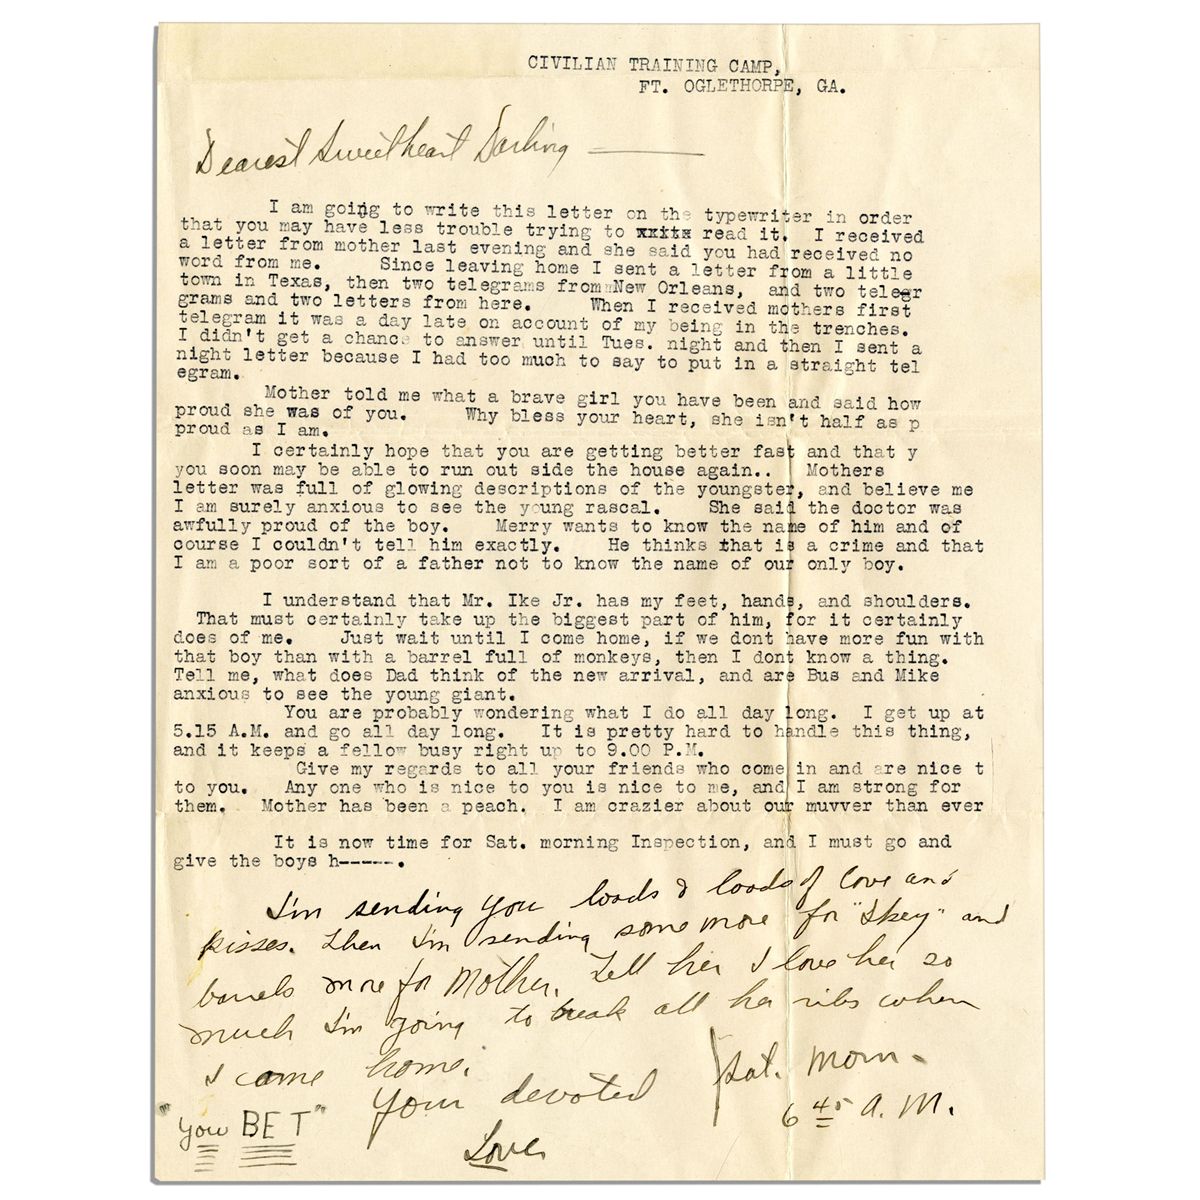 CIVILIAN TRAINING CAMP,
FT. OGLETHORPE, GA.
Dearest Sweetheart Darling ———
I am going to write this letter on the typewriter in order
that you may have less trouble trying to read it. I received
a letter from mother last evening and she said you had received no
word from me. Since leaving home I sent a letter from a little
town in Texas, then two telegrams from New Orleans, and two telegr
grams and two letters from here. When I received mothers first
telegram it was a day late on account of my being in the trenches.
I didn't get a chance to answer until Tues. night and then I sent a
night letter because I had too much to say to put in a straight tel
egram.
Mother told me what a brave girl you have been and said how
proud she was of you. Why bless your heart, she isn't half as p
proud as I am.
I certainly hope that you are getting better fast and that y
you soon may be able to run out side the house again.. Mothers
letter was full of glowing descriptions of the youngster, and believe me
I am surely anxious to see the young rascal. She said the doctor was
awfully proud of the boy. Merry wants to know the name of him and of
course I couldn't tell him exactly. He thinks that is a crime and that
I am a poor sort of a father not to know the name of our only boy.
I understand that Mr. Ike Jr. has my feet, hands, and shoulders.
That must certainly take up the biggest part of him, for it certainly
does of me. Just wait until I come home, if we dont have more fun with
that boy than with a barrel full of monkeys, then I dont know a thing.
Tell me, what does Dad think of the new arrival, and are Bus and Mike
anxious to see the young giant.
You are probably wondering what I do all day long. I get up at
5.15 A.M. and go all day long. It is pretty hard to handle this thing,
and it keeps a fellow busy right up to 9.00 P.M.
Give my regards to all your friends who come in and are nice t
to you. Any one who is nice to you is nice to me, and I am strong for
them. Mother has been a peach. I am crazier about our muvver than ever
It is now time for Sat. morning Inspection, and I must go and
give the boys h-----.
I'm sending you loads & loads of love and
kisses. Then I'm sending some more for "Ikey" and
barrels more for Mother. Tell her I love her so
much I'm going to break all her ribs when
I come home.
Your devoted
Lover
Sat. Morn-
6 45 A.M.
"you BET"